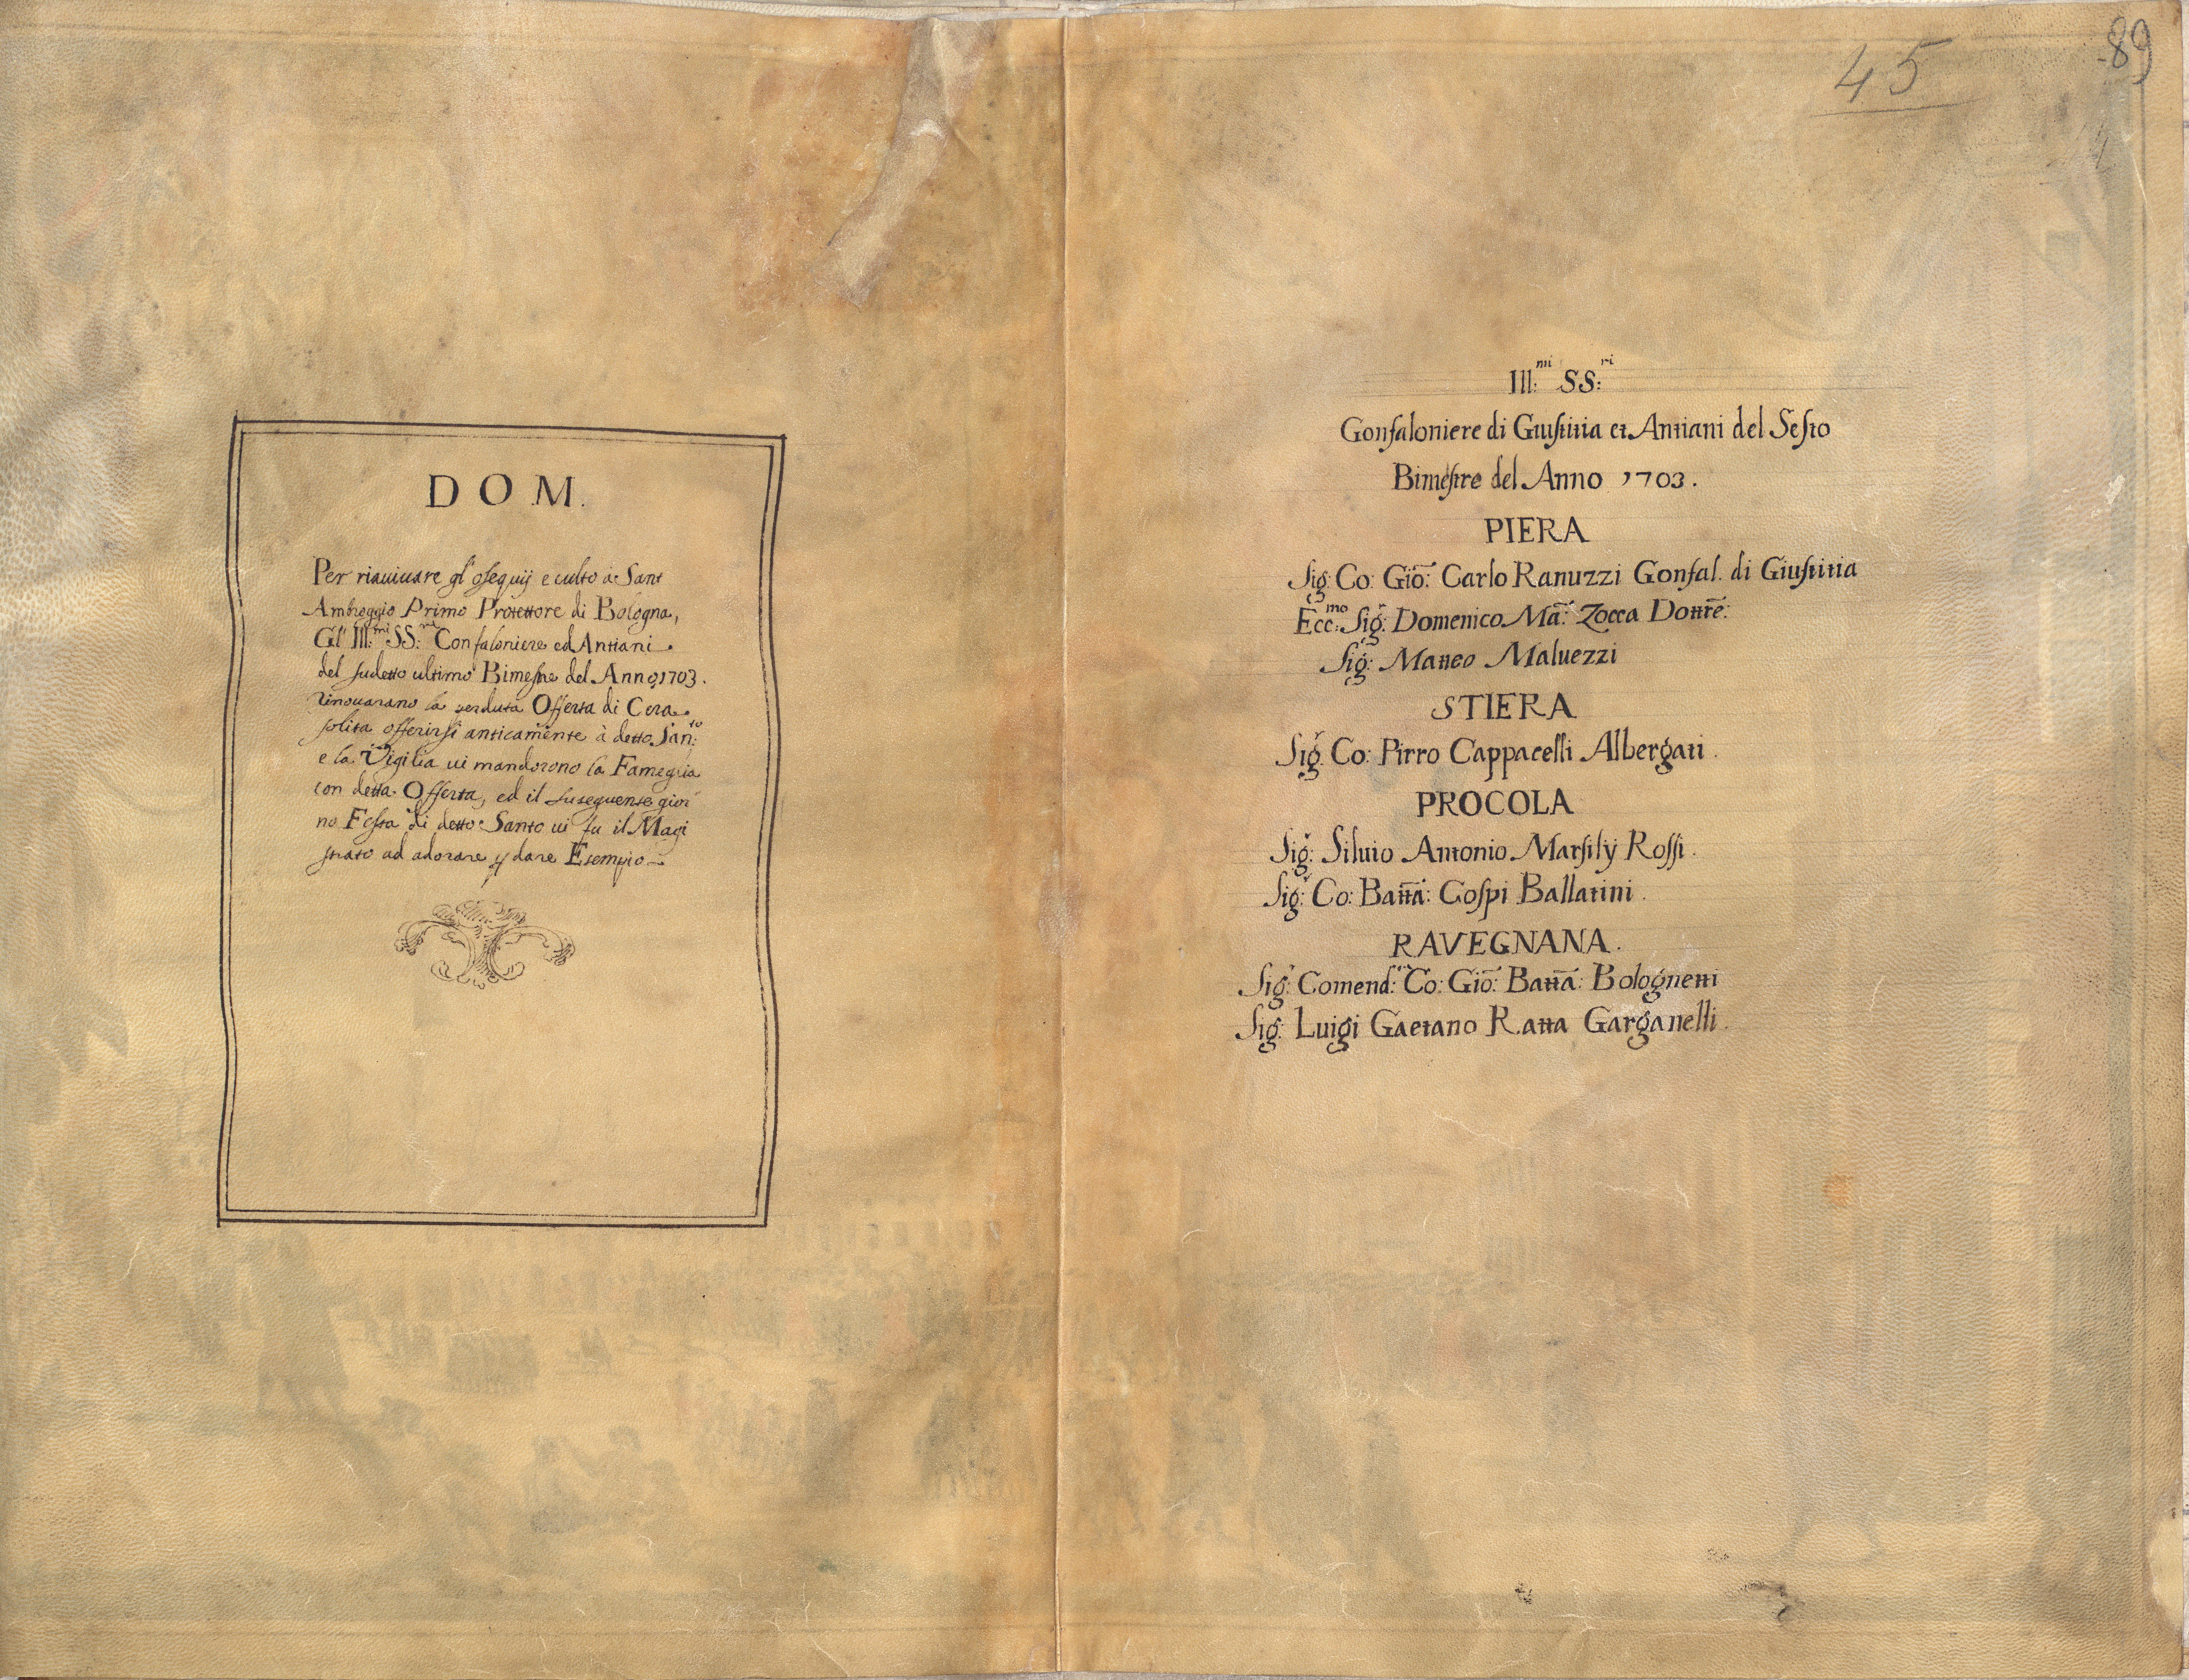 D O M.
Per riauiuare gl'osequij e culto à Sant
Ambroggio Primo Protettore di Bologna,
Gl' Ill:mi SS:ri Confaloniere ed Antiani
del sudetto ultimo Bimestre del Anno 1703.
rinouarano la perduta Offerta di Cera
solita offerirsi anticamente à detto San:to
e la Vigilia ui mandorono la Fameglia
con detta Offerta, ed il susequense gior
no Festa di detto Santo ui fu il Magi
strato ad adorare p dare Esempio
45
89
Ill:mi SS:ri
Gonfaloniere di Giustitia et Antiani del Sesto
Bimestre del Anno 1703.
PIERA
Sig: Co: Gio: Carlo Ranuzzi Gonfal. di Giustitia
Ecc:mo Sig: Domenico Ma: Zocca Dottre:
Sig: Matteo Maluezzi
STIERA
Sig: Co: Pirro Cappacelli Albergati.
PROCOLA
Sig: Siluio Antonio Marsilÿ Rossi.
Sig: Co: Batta: Cospi Ballatini.
RAVEGNANA.
Sig: Comend:re Co: Gio: Batta: Bolognetti
Sig: Luigi Gaetano Ratta Garganelli.